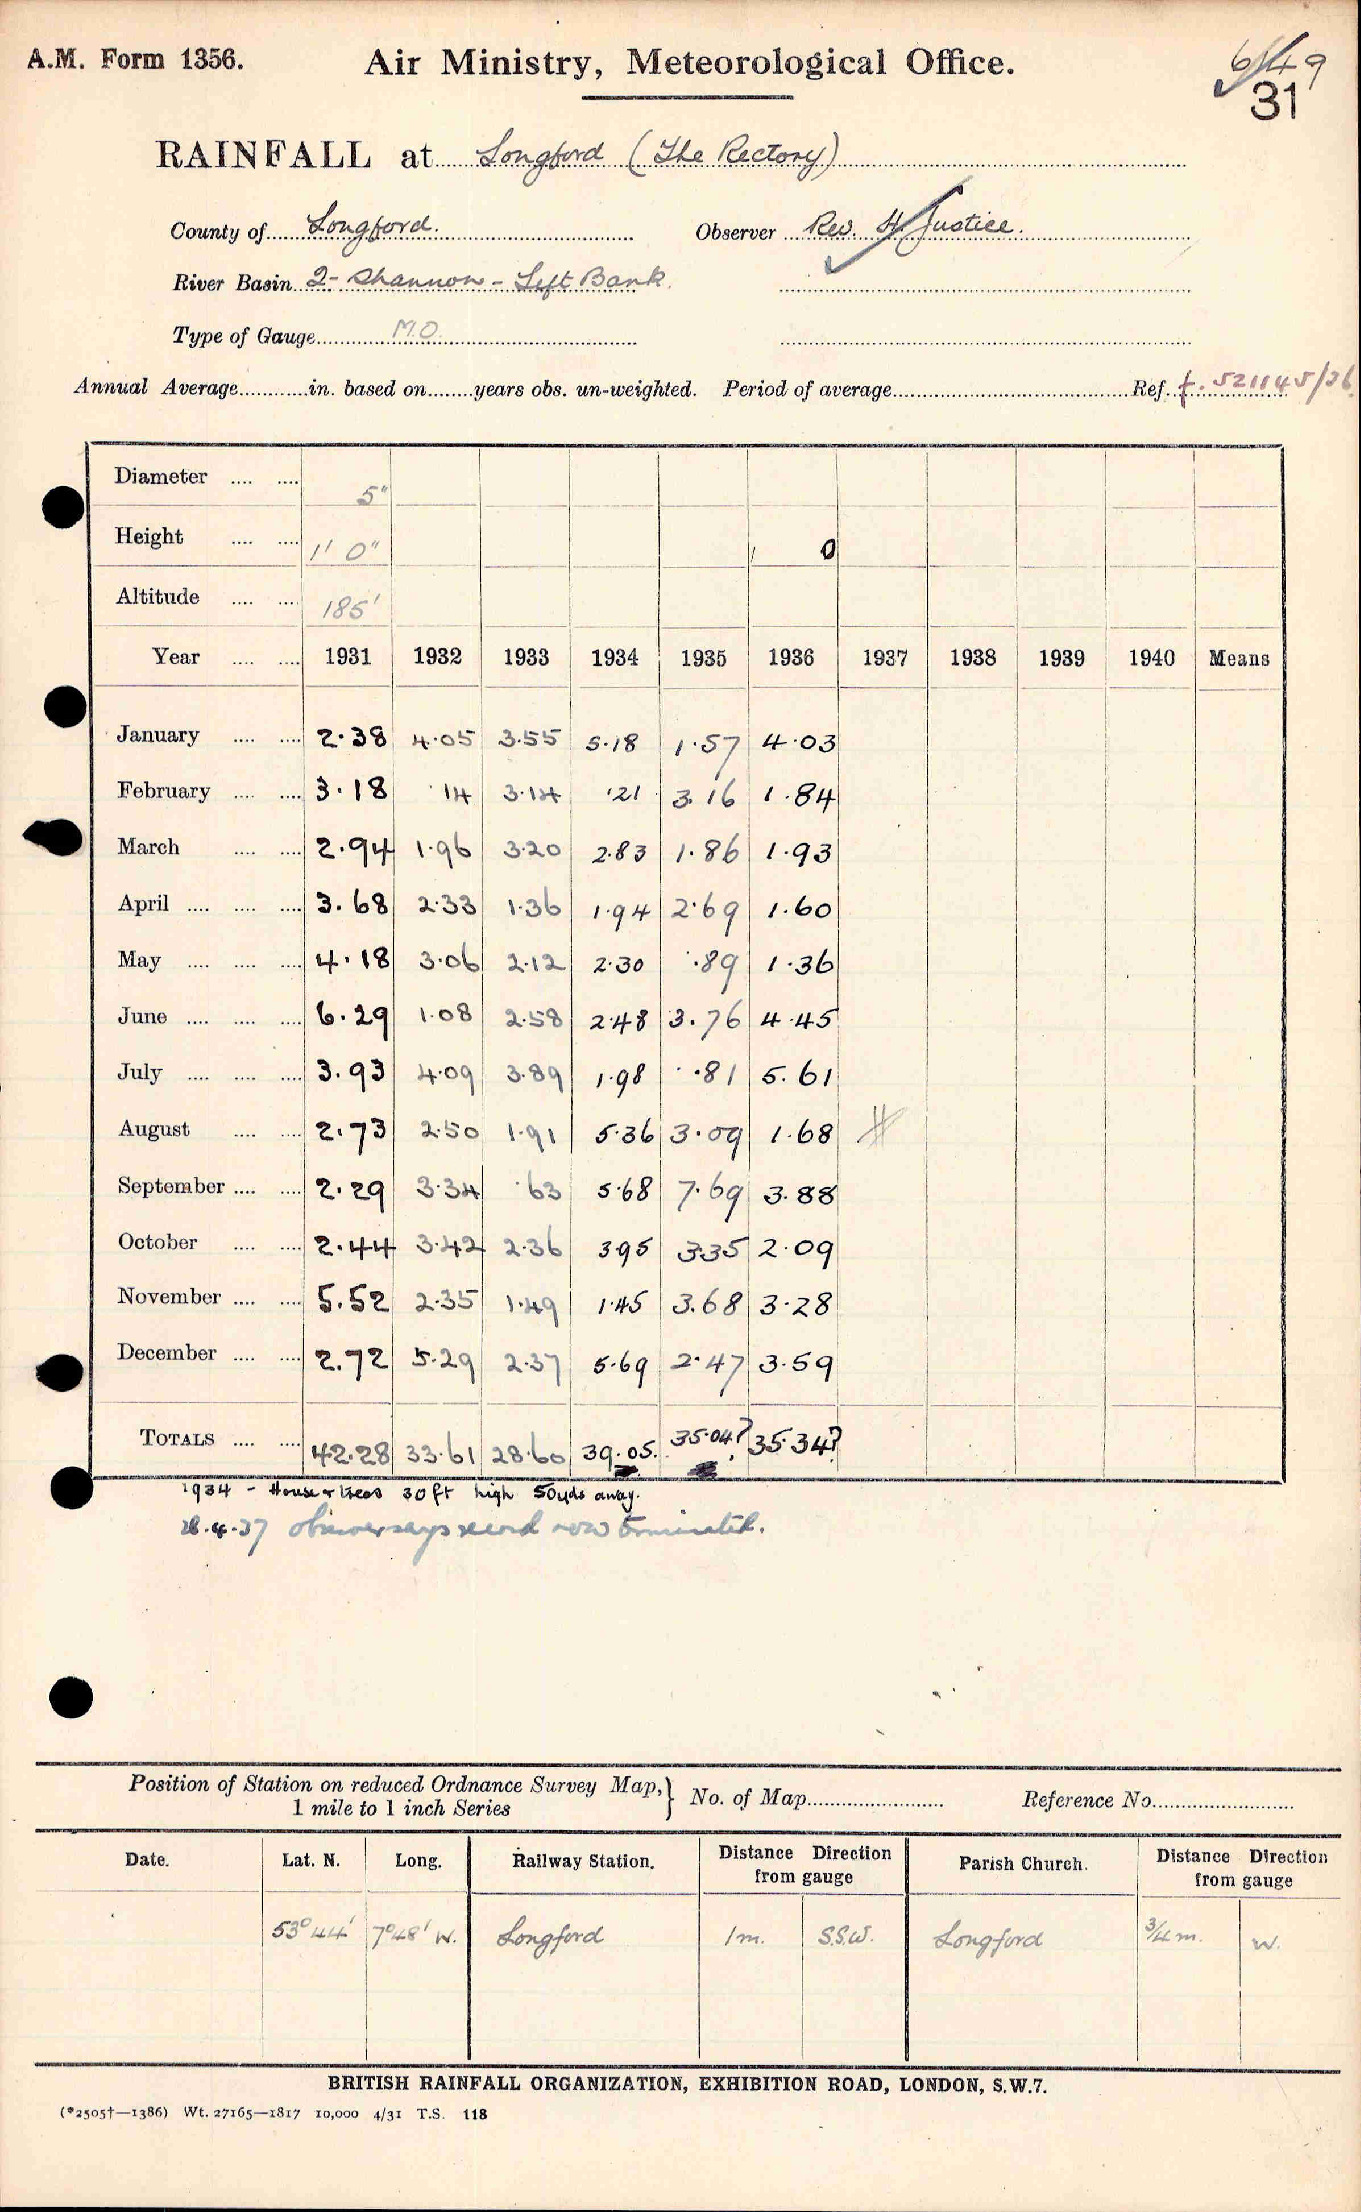 A.M. Form 1356.
Air Ministry, Meteorological Office.
6/49
31
RAINFALL at Longford (The Rectory)
County of Longford. Observer Rev. H. Justice.
River Basin 2- Shannon - Left Bank.
Type of Gauge M.O.
Annual Average in. based on years obs. un-weighted. Period of average Ref. f. 521145/36
Diameter 5"
Height 1' 0" 1 0
Altitude 185'
Year 1931 1932 1933 1934 1935 1936 1937 1938 1939 1940 Means
January 2.38 4.05 3.55 5.18 1.57 4.03
February 3.18 .14 3.14 .21 3.16 1.84
March 2.94 1.96 3.20 2.83 1.86 1.93
April 3.68 2.33 1.36 1.94 2.69 1.60
May 4.18 3.06 2.12 2.30 .89 1.36
June 6.29 1.08 2.58 2.48 3.76 4.45
July 3.93 4.09 3.89 1.98 .81 5.61
August 2.73 2.50 1.91 5.36 3.09 1.68
September 2.29 3.34 .63 5.68 7.69 3.88
October 2.44 3.42 2.36 3.95 3.35 2.09
November 5.52 2.35 1.49 1.45 3.68 3.28
December 2.72 5.29 2.37 5.69 2.47 3.59
TOTALS 42.28 33.61 28.60 39.05. 35.04? 35.34?
1934 - House & trees 30ft high 50yds away.
28.4.37 observer says record now terminated.
Position of Station on reduced Ordnance Survey Map,} No. of Map Reference No.
1 mile to 1 inch Series
Date. Lat. N. Long. Railway Station. Distance Direction from gauge Parish Church. Distance Direction from gauge
53° 44' 7° 48' W. Longford 1m. S.S.W. Longford 3/4 m. W.
BRITISH RAINFALL ORGANIZATION, EXHIBITION ROAD, LONDON, S.W.7.
(*2505†—1386) Wt. 27165—1817 10,000 4/31 T.S. 118